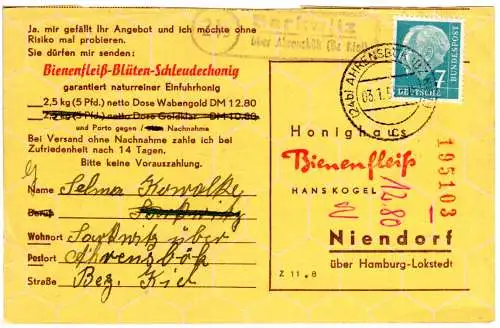 Ja, mir gefällt Ihr Angebot und ich möchte ohne
Risiko mal probieren.
Sie dürfen mir senden:
Bienenfleiß-Blüten-Schleuderhonig
garantiert naturreiner Einfuhrhonig
2,5 kg (5 Pfd.) netto Dose Wabengold DM 12.80
2,5 kg (5 Pfd.) netto Dose Goldklar DM 10.80
und Porto gegen / Nachnahme
Bei Versand ohne Nachnahme zahle ich bei
Zufriedenheit nach 14 Tagen.
Bitte keine Vorauszahlung.
Name Selma Kowalke
Beruf Sarkwitz
Wohnort Sarkwitz über
Postort Ahrensbök
Straße Bez. Kiel
24
Sarkwitz
über Ahrensbök (Bz Kiel)
(24b) AHRENSBÖK
03.1.5
7
DEUTSCHE
BUNDESPOST
Honighaus
Bienenfleiß
HANS KOGEL
Niendorf
über Hamburg-Lokstedt
Z 11. 8
12.80
N
195103